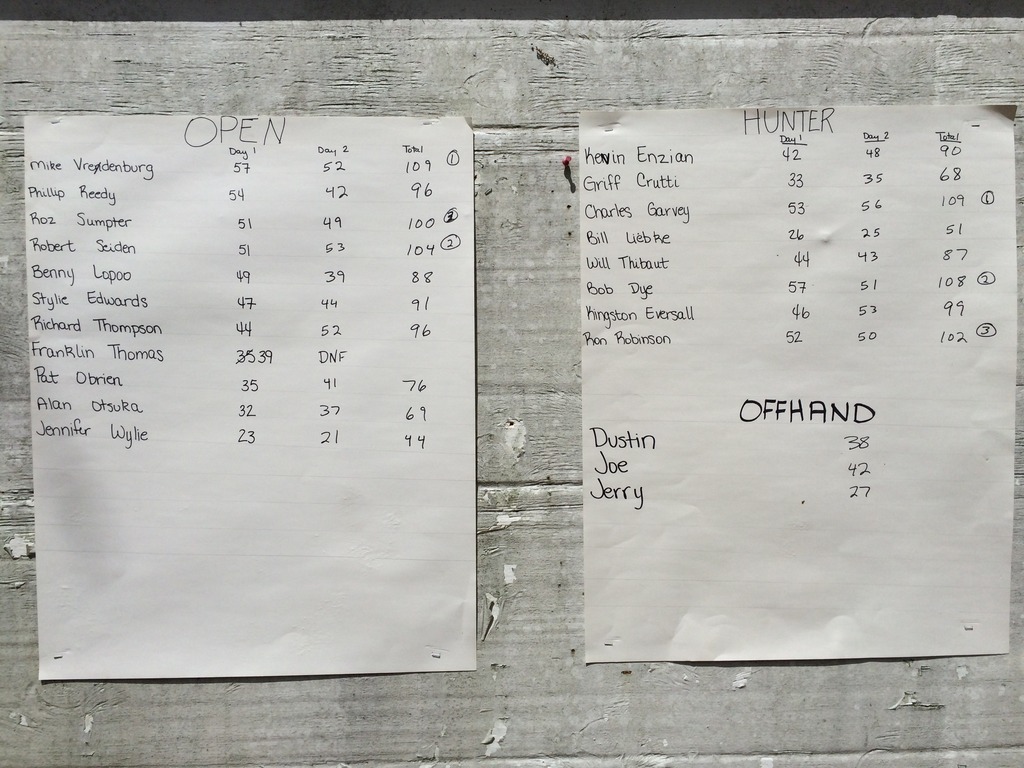 OPEN
Day 1 Day 2 Total
Mike Vredenburg 57 52 109 ①
Phillip Reedy 54 42 96
Roz Sumpter 51 49 100 ③
Robert Seiden 51 53 104 ②
Benny Lopoo 49 39 88
Stylie Edwards 47 44 91
Richard Thompson 44 52 96
Franklin Thomas 3539 DNF
Pat Obrien 35 41 76
Alan Otsuka 32 37 69
Jennifer Wylie 23 21 44
HUNTER
Day 1 Day 2 Total
Kevin Enzian 42 48 90
Griff Crutti 33 35 68
Charles Garvey 53 56 109 ①
Bill Liebke 26 25 51
Will Thibaut 44 43 87
Bob Dye 57 51 108 ②
Kingston Eversall 46 53 99
Ron Robinson 52 50 102 ③
OFFHAND
Dustin 38
Joe 42
Jerry 27